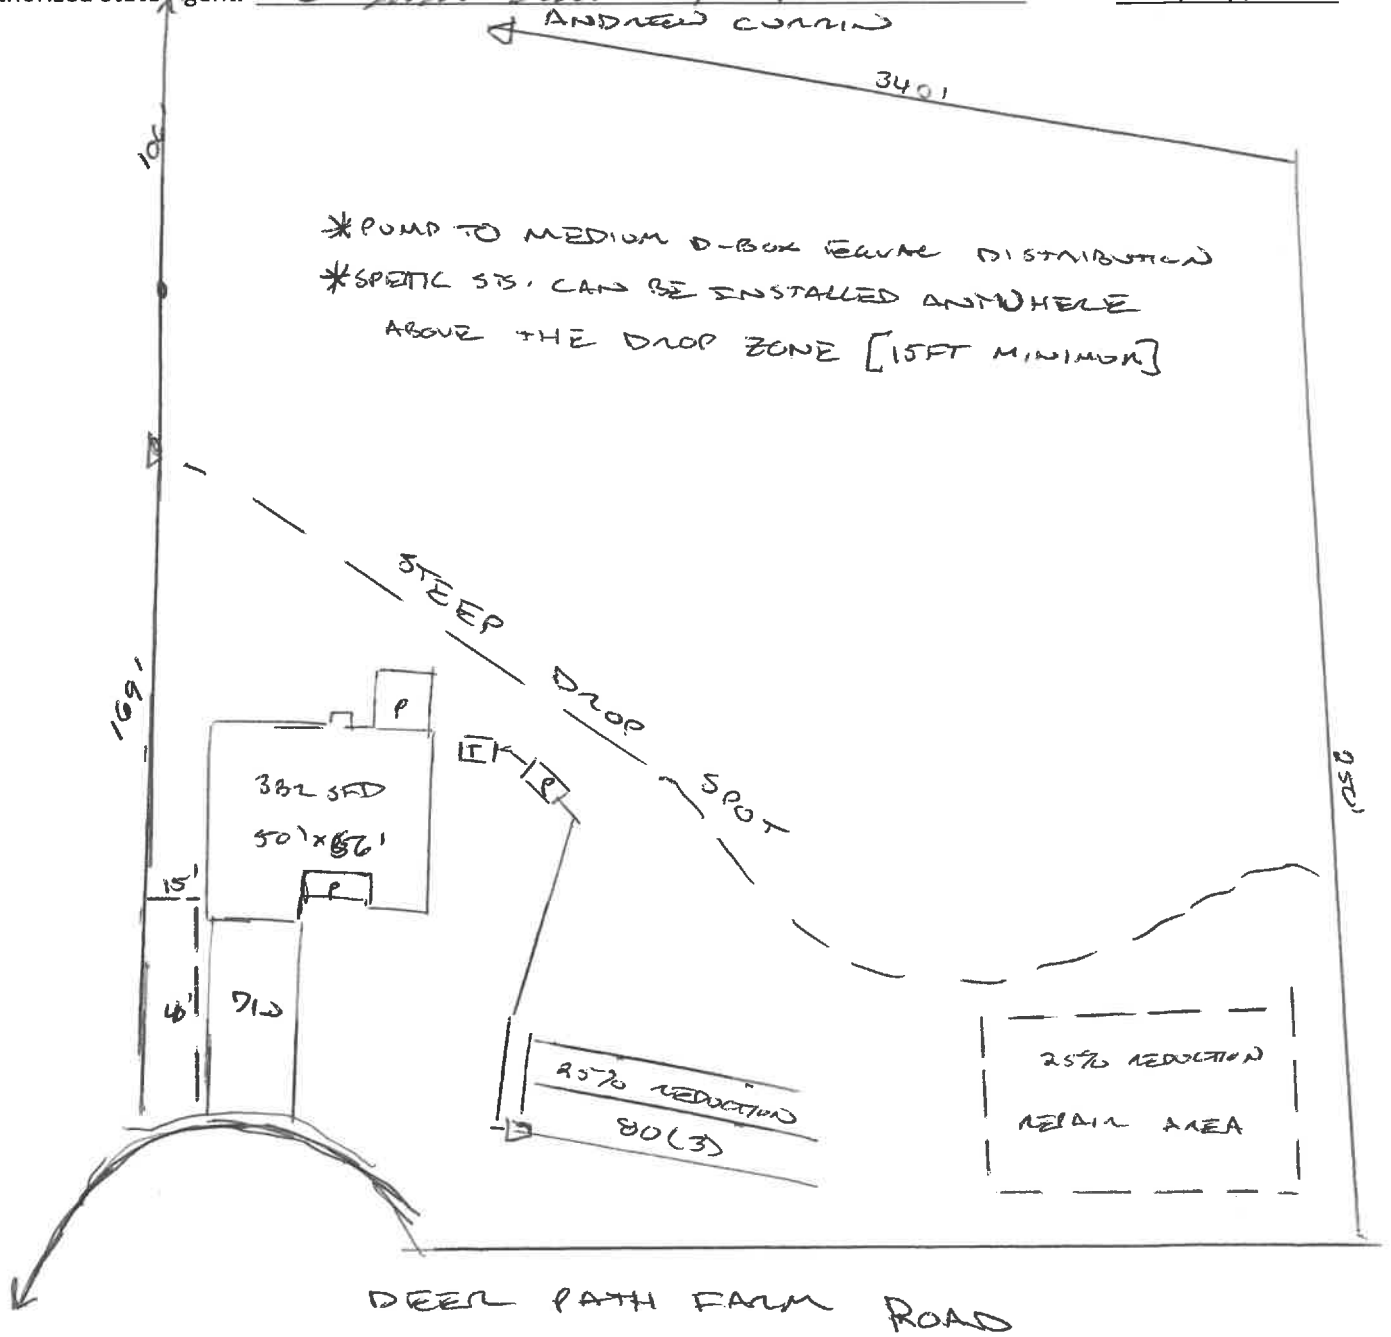 ANDREW CURRIN
340'
*PUMP TO MEDIUM D-BOX EQUAL DISTRIBUTION
*SPETIC SYS. CAN BE INSTALLED ANYWHERE
ABOVE THE DROP ZONE [15FT MINIMUM]
STEEP DROP SPOT
169'
P
T
P
3BR SFD
50' x 56'
P
15'
40'
D/W
250'
25% REDUCTION
80(3)
25% REDUCTION
REPAIR AREA
DEER PATH FARM ROAD